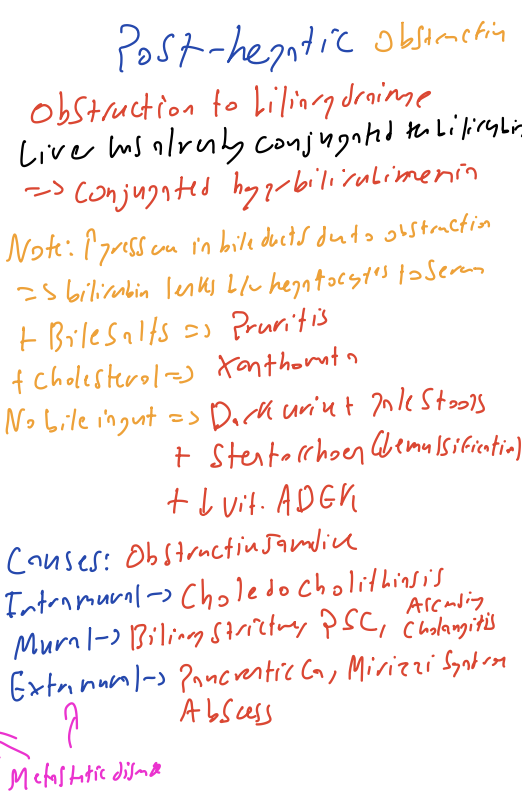 Post-hepatic Obstruction
Obstruction to biliary drainage
Liver has already conjugated the bilirubin
=> Conjugated hyperbilirubinemia
Note: ↑ pressure in bile ducts due to obstruction
=> bilirubin leaks b/w hepatocytes to serum
+ Bile Salts => Pruritis
+ Cholesterol => Xanthomata
No bile in gut => Dark urine + pale Stools
+ Steatorrhoea (↓emulsification)
+ ↓ Vit. ADEK
Causes: Obstructive Jaundice
Intramural -> Choledocholithiasis
Mural -> Biliary Stricture, PSC, Ascending Cholangitis
Extramural -> Pancreatic Ca, Mirizzi Syndrome
Abscess
Metastatic disease